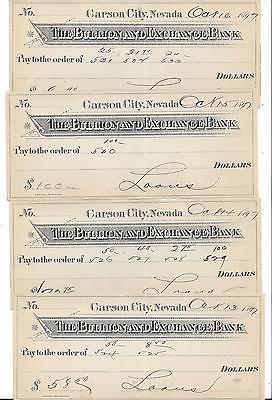 No. Carson City, Nevada Oct 16 189
THE BULLION AND EXCHANGE BANK,
Pay to the order of
DOLLARS
$
No. Carson City, Nevada Oct 15 189
THE BULLION AND EXCHANGE BANK,
100-
Pay to the order of 530
DOLLARS
$100- Loans
No. Carson City, Nevada Oct 14 189
THE BULLION AND EXCHANGE BANK,
50- 40 100
Pay to the order of 526 527 528 529
DOLLARS
$
No. Carson City, Nevada Oct 13 189
THE BULLION AND EXCHANGE BANK,
50- 8
Pay to the order of 524 525
DOLLARS
$58 Loans